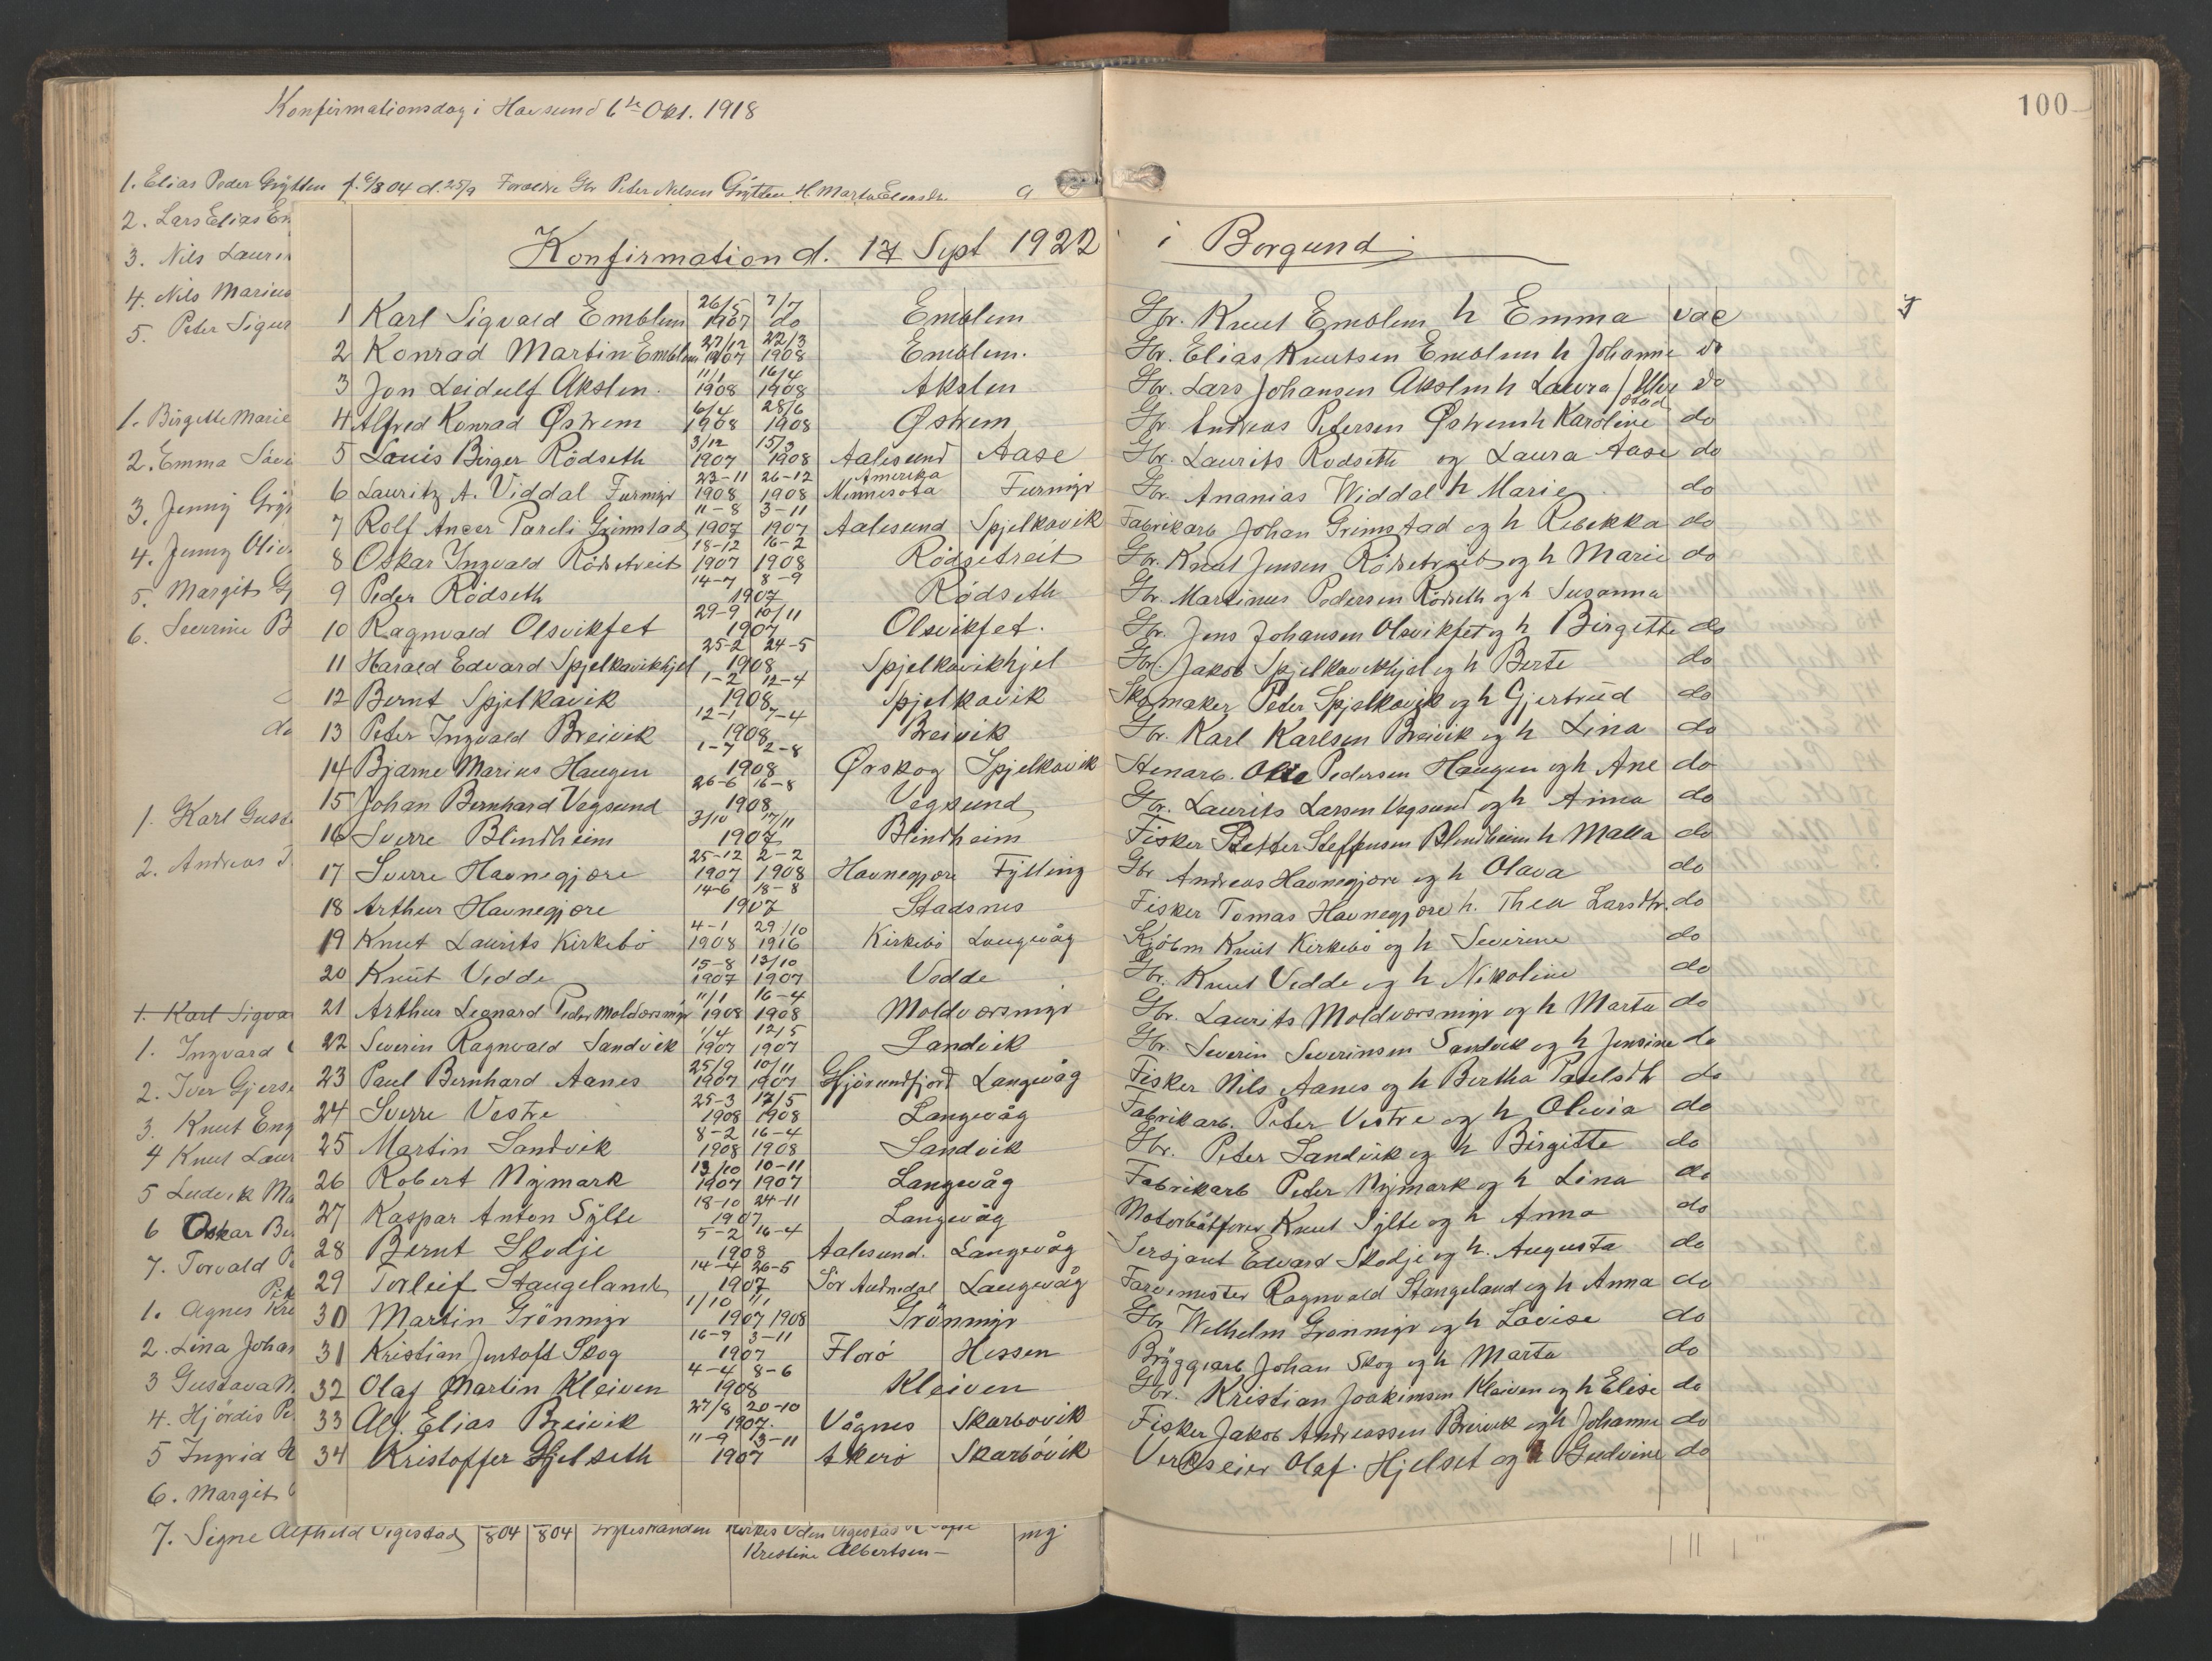 Konfirmationsdag i Havsund 6te Okt. 1918
100
1. Elias Peder Grytten f. 6/8 04 d. 25/9 Forældre Gbr Peter Nelsen Grytten H. Marta
2. Lars Elias
3. Nils
4. Nils Marius
5. Peter Sigur
1. Birgitte Marie
2. Emma
3. Jenny
4. Jenny
5. Margit
6. Severine B
do
1. Karl
2. Andreas
1. Karl Sigva
1. Ingvard
2. Iver Gjers
3. Knut Eng
4 Knut Laur
5 Ludvik Ma
6 Oskar Be
7. Torvald
1. Agnes
2. Lina Joha
3 Gustava
4. Hjördis
5 Ingrid
6. Margit
7. Signe Vegestad 804 804
Kristine Albertsen mg
Konfirmation d. 17 Sept 1922 i Borgund
1 Karl Sigvald Emblem 26/5 1907 7/7 do Emblem Gbr. Knut Emblem h Emma vac
2 Konrad Martin Emblem 27/12 1907 22/3 1908 Emblem. Gbr. Elias Knutsen Emblem h Johanne do
3 Jon Leidulf Akslen. 11/1 1908 16/4 1908 Akslen Gbr. Lars Johansen Akslen h Laura do
4 Alfred Konrad Östrem 6/4 1908 28/6 1908 Östrem Gbr Andreas Petersen Östrem h Karoline do
5 Louis Birger Rödseth 3/12 1907 15/3 1908 Aalesund Aase Gbr. Laurits Rodseth og Laura Aase do
6 Lauritz A. Viddal Furmyr 23-11 1908 26-12 1908 Amerika Minnesota Furmyr Gbr. Ananias Widdal h Marie do
7 Rolf Anger Pareli Grimstad 11-8 1907 3-11 1907 Aalesund Spjelkavik Fabrikarb Johan Grimstad og h Rebekka do
8 Oskar Ingvald Rödsetreit 18-12 1907 16-2 1908 Rödsetreit Gbr. Knut Jensen Rödsetreit og h Marie do
9 Peder Rödseth 14-7 8-9 1907 Rödseth Gbr. Martinus Pedersen Rödseth og h Susanna
10 Ragnvald Olsvikfet 29-9 10/11 1907 Olsvikfet. Gbr. Jens Johansen Olsvikfet og h Birgitte do
11 Harald Edvard Spjelkavikhjel 25-2 24-5 1908 Spjelkavikhjel Gbr. Jakob Spjelkavikhjel og h Berte do
12 Bernt Spjelkavik 1-2 12-4 1908 Spjelkavik Skomaker Peter Spjelkavik og h Gjertrud do
13 Peter Ingvald Breivik 12-1 7-4 1908 Breivik Gbr. Karl Karlsen Breivik og h Lina do
14 Bjarne Marius Haugen 1-7 2-8 1908 Ørskog Spjelkavik Stenarb. Ole Pedersen Haugen og h Ane do
15 Johan Bernhard Vegsund 26-6 16-8 1908 Vegsund Gbr. Laurits Larsen Vegsund og h Anna do
16 Sverre Blindheim 3/10 17/11 1907 Blindheim Fisker Petter Steffensen Blindheim h Malla do
17 Sverre Havnegjøre 25-12 1907 2-2 1908 Havnegjøre Fylling Gbr Andreas Havnegjøre og h Olava do
18 Arthur Havnegjøre 14-6 18-8 1907 Stadsnes Fisker Tomas Havnegjøre h. Thea Larsdtr. do
19 Knut Laurits Kirkebö 4-1 1908 29/10 1916 Kirkebö Langevåg Kjöbm Knut Kirkebö og h Severine do
20 Knut Vedde 15-8 1907 13/10 1907 Vedde Gbr. Knut Vedde og h Nikoline do
21 Arthur Leonard Peder Moldværsmyr 11/1 1908 16-4 1908 Moldværsmyr Gbr. Laurits Moldværsmyr og h Marta do
22 Severin Ragnvald Sandvik 1/4 1907 12/5 1907 Sandvik Gbr. Severin Severinsen Sandvik og h Jensine do
23 Paul Bernhard Aanes 25/9 1907 10/11 1907 Hjörundfjord Langevåg Fisker Nils Aanes og h Bertha Paulsdtr do
24 Sverre Vestre 25-3 1908 17/5 1908 Langevåg Fabrikarb. Peter Vestre og h Olivia do
25 Martin Sandvik 8-2 1908 16-4 1908 Sandvik Gbr. Peter Sandvik og h Birgitte do
26 Robert Nymark 13/10 1907 10-11 1907 Langevåg Fabrikarb Peter Nymark og h Lina do
27 Kaspar Anton Sylte 18-10 24-11 1907 Langevåg Motorbåtfører Knut Sylte og h Anna do
28 Bernt Skodje 5-2 16-4 1908 Aalesund. Langevåg Sersjant Edvard Skodje og h. Augusta do
29 Torleif Stangeland 14-4 26-5 1907 Sör Audnedal Langevåg Farvemester Ragnvald Stangeland og h Anna do
30 Martin Grönmyr 1/10 1907 1/1 1908 Grönmyr Gbr Wilhelm Grönmyr og h Lovise do
31 Kristian Jentoft Skog 16-9 3-11 1907 Florö Hessen Bryggearb Johan Skog og h Marta do
32 Olaf Martin Kleiven 4-4 8-6 1908 Kleiven Gbr. Kristian Joakimsen Kleiven og h Elise do
33 Alf. Elias Breivik 27/8 20-10 1907. Vågnes Skarbovik Fisker Jakob Andreassen Breivik og h Johanne do
34 Kristoffer Hjelseth 11-9 3-11 1907 Akerö Skarbövik Verkseier Olaf Hjelset og h Gudvine do